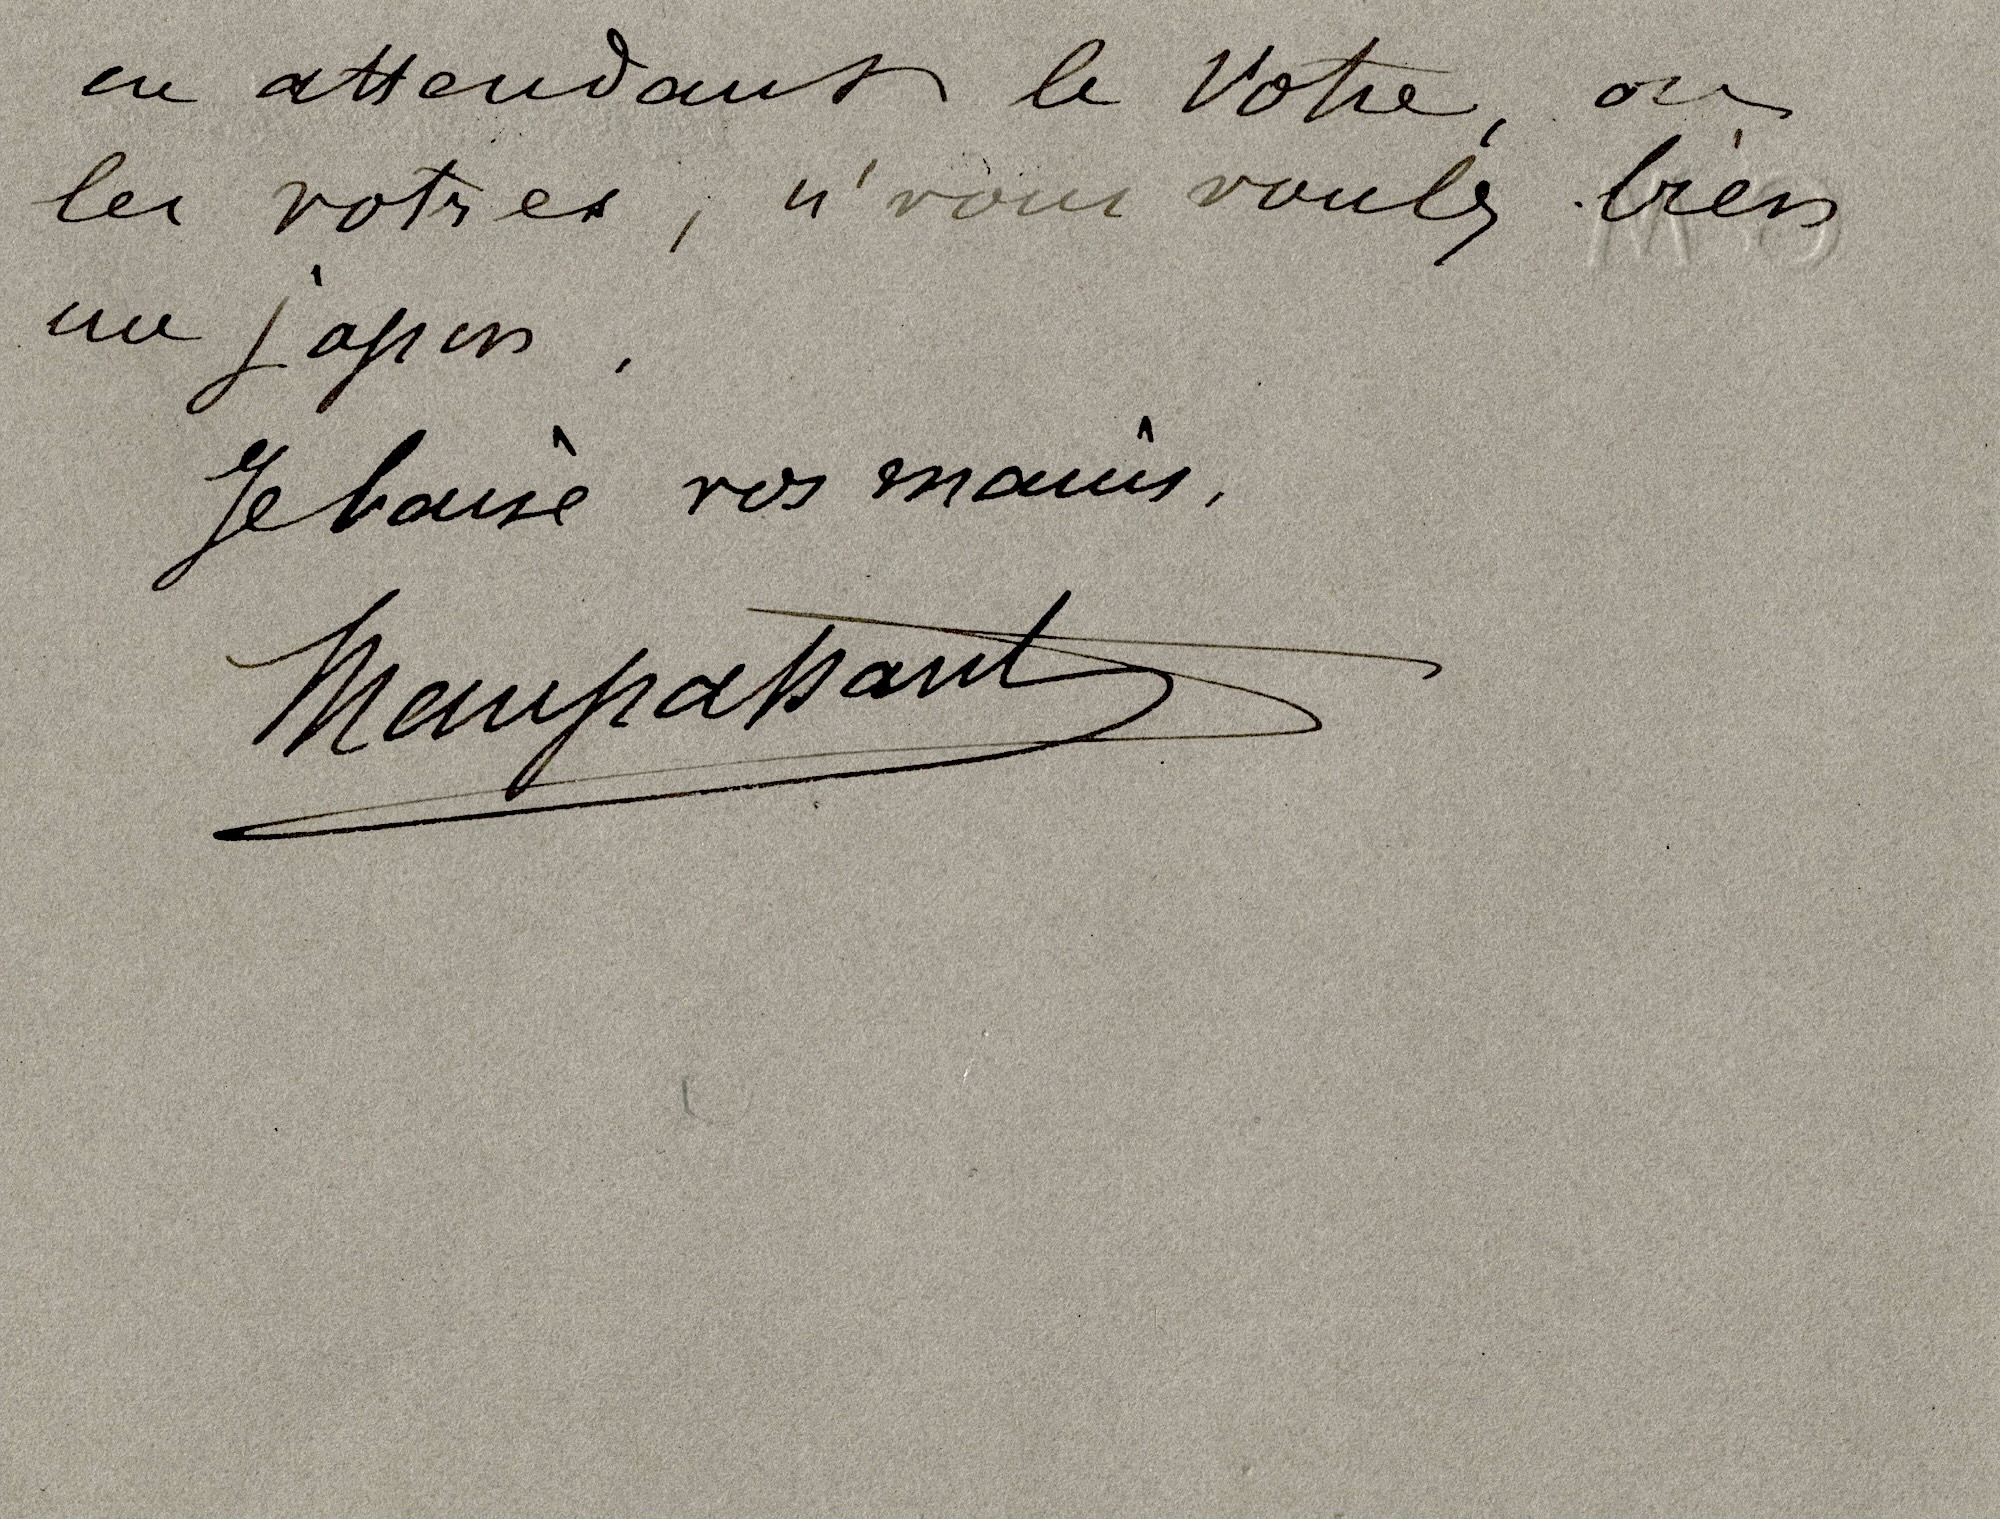 en attendant le Votre, ou
les votres, si vous voulez bien
un japon.
Je baise vos mains.
Maupassant